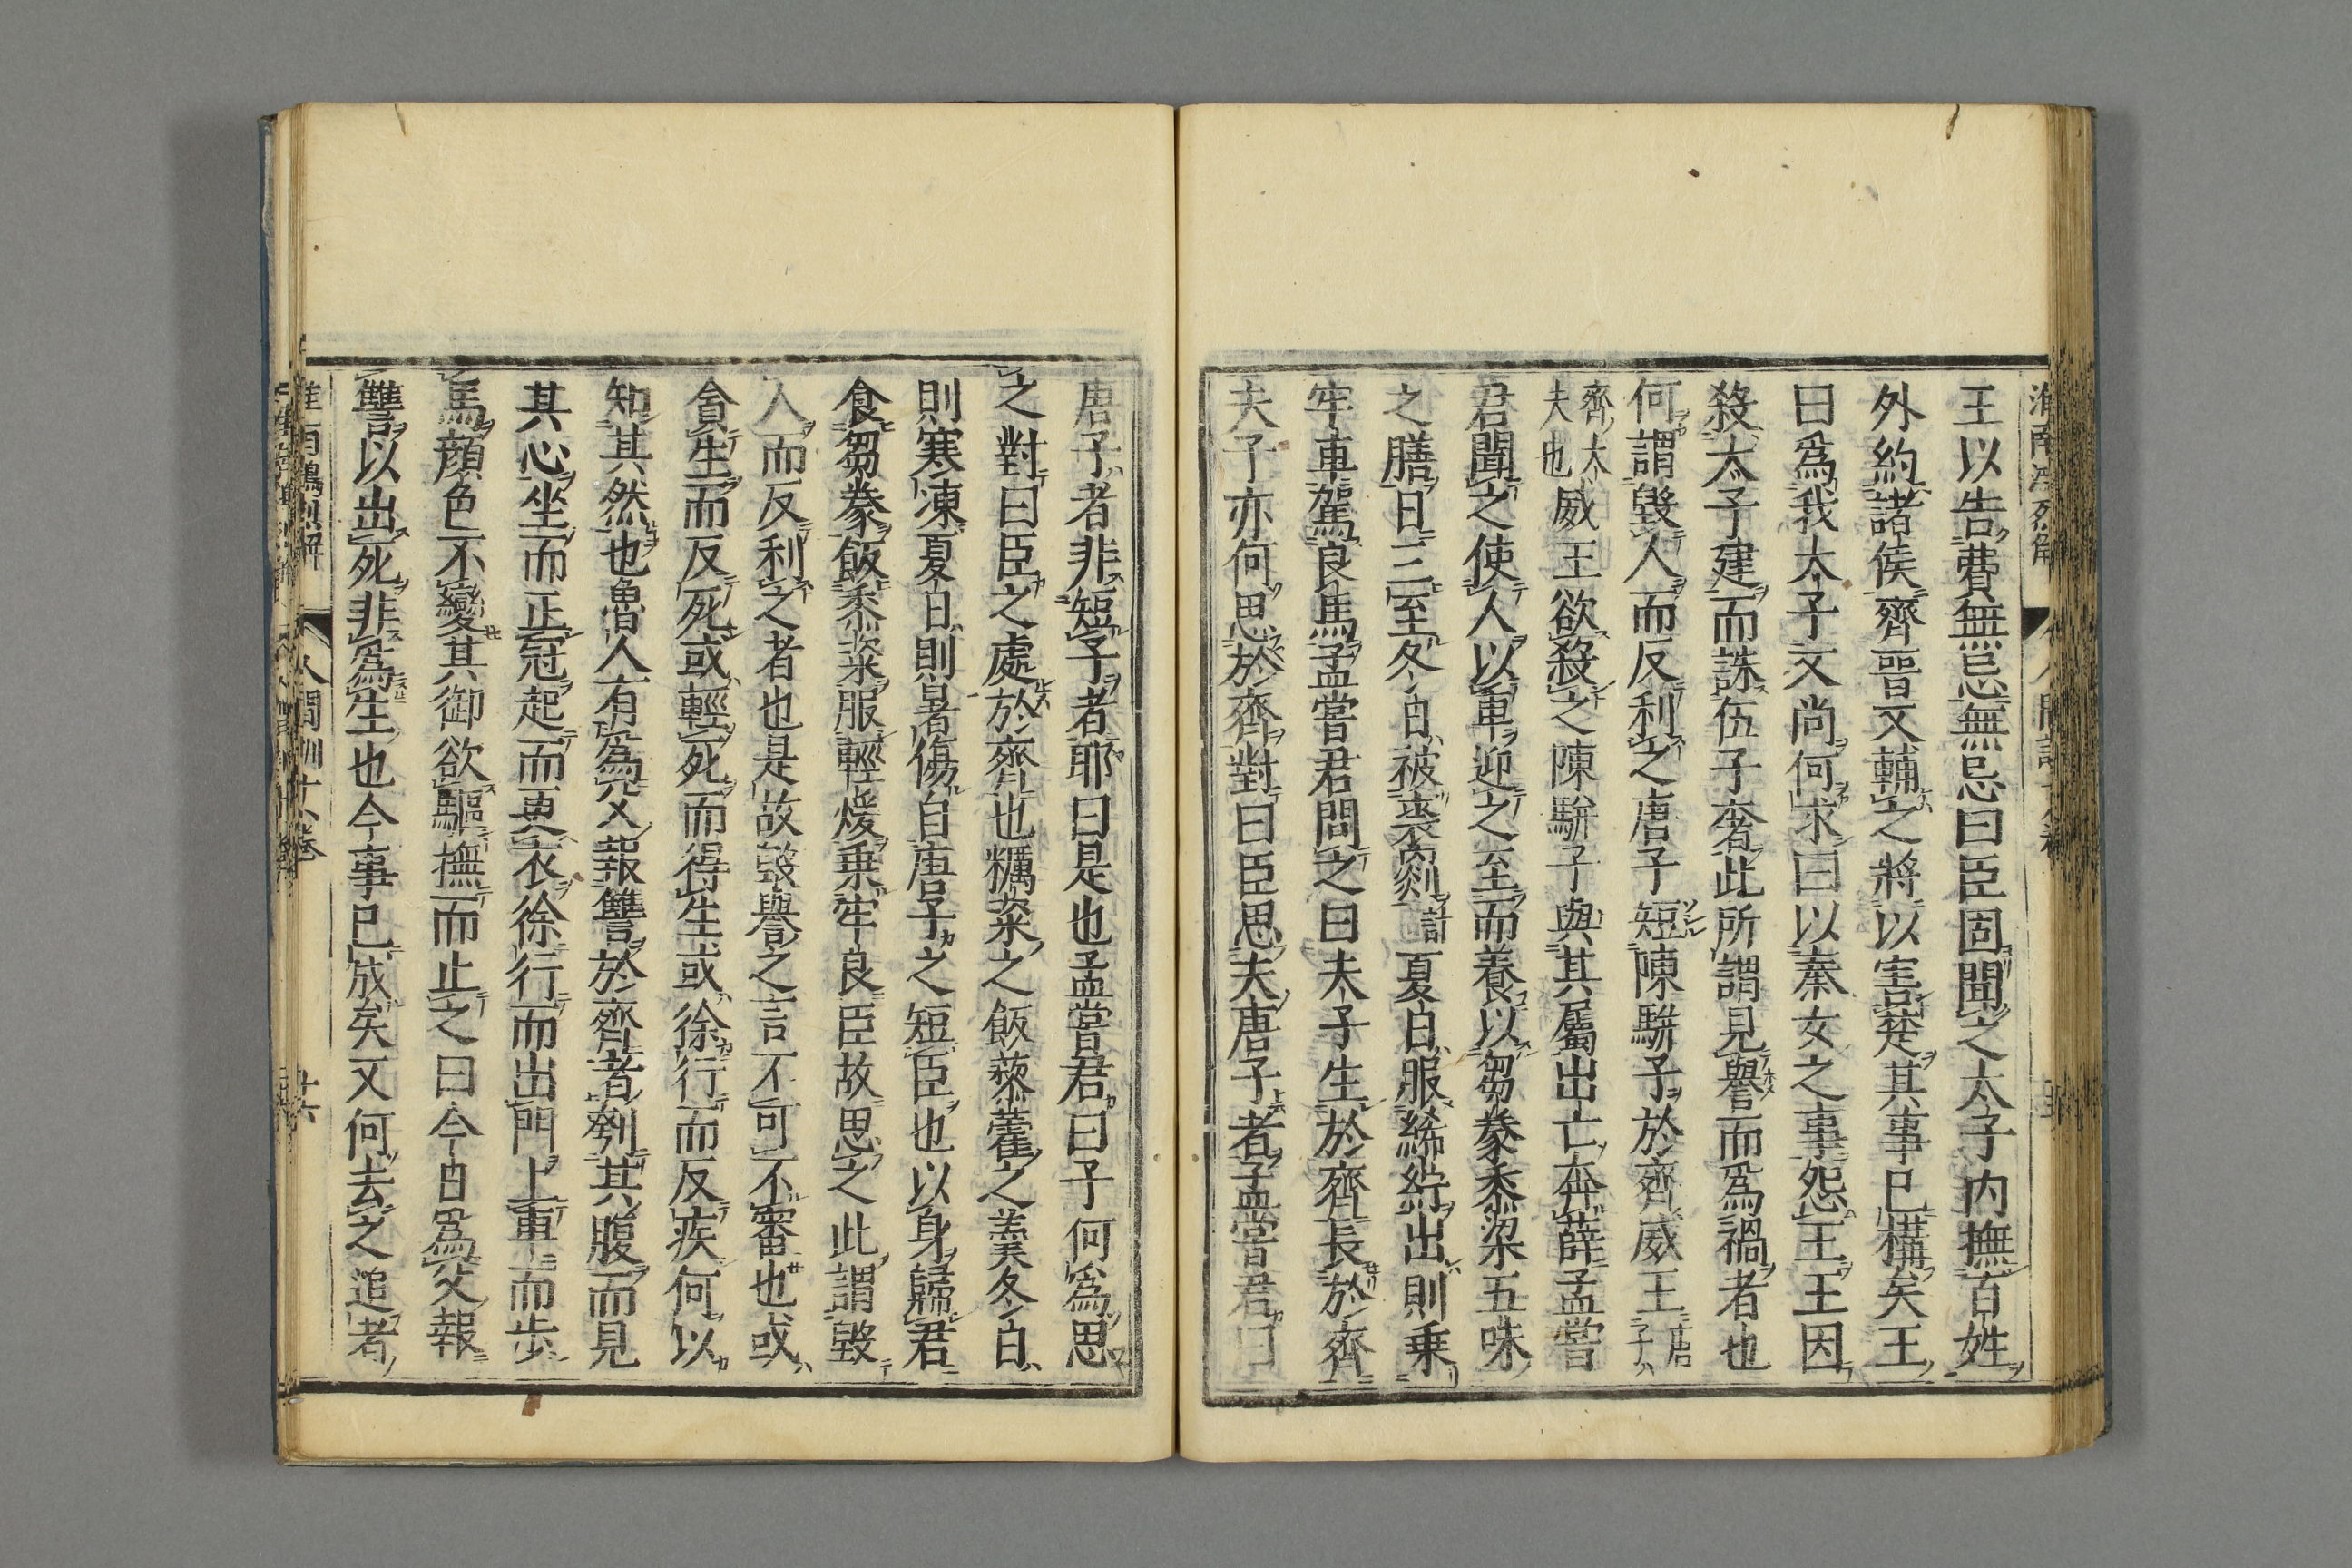 王以告費無忌無忌曰臣固聞之太子内撫百姓
外約諸侯齊晉又輔之將以害楚其事已構矣王
曰爲我太子又尚何求曰以秦女之事怨王王因
殺太子建而誅伍子奢此所謂見譽而爲禍者也
何謂毀人而反利之唐子短陳駢子於齊威王唐子
齊大夫也威王欲殺之陳駢子與其屬出亡奔薛孟嘗
君聞之使人以車迎之至而養以芻豢黍粱五味
之膳日三至冬日被裘罽計夏日服絺紵出則乗
牢車駕良馬孟嘗君問之曰夫子生於齊長於齊
夫子亦何思於齊對曰臣思夫唐子者孟嘗君曰
唐子者非短子者耶曰是也孟嘗君曰子何爲思
之對曰臣之處於齊也糲粢之飯藜藿之羹冬日
則寒凍夏日則暑傷自唐子之短臣也以身歸君
食芻豢飯黍粢服輕煖乗牢良臣故思之此謂毀
人而反利之者也是故毀譽之言不可不審也或
貪生而反死或輕死而得生或徐行而反疾何以
知其然也魯人有爲父報讐於齊者刳其腹而見
其心坐而正冠起而更衣徐行而出門上車而歩
馬顔色不變其御欲驅撫而止之曰今日爲父報
讐以出死非爲生也今事已成矣又何去之追者
人間訓十八巻
廿六